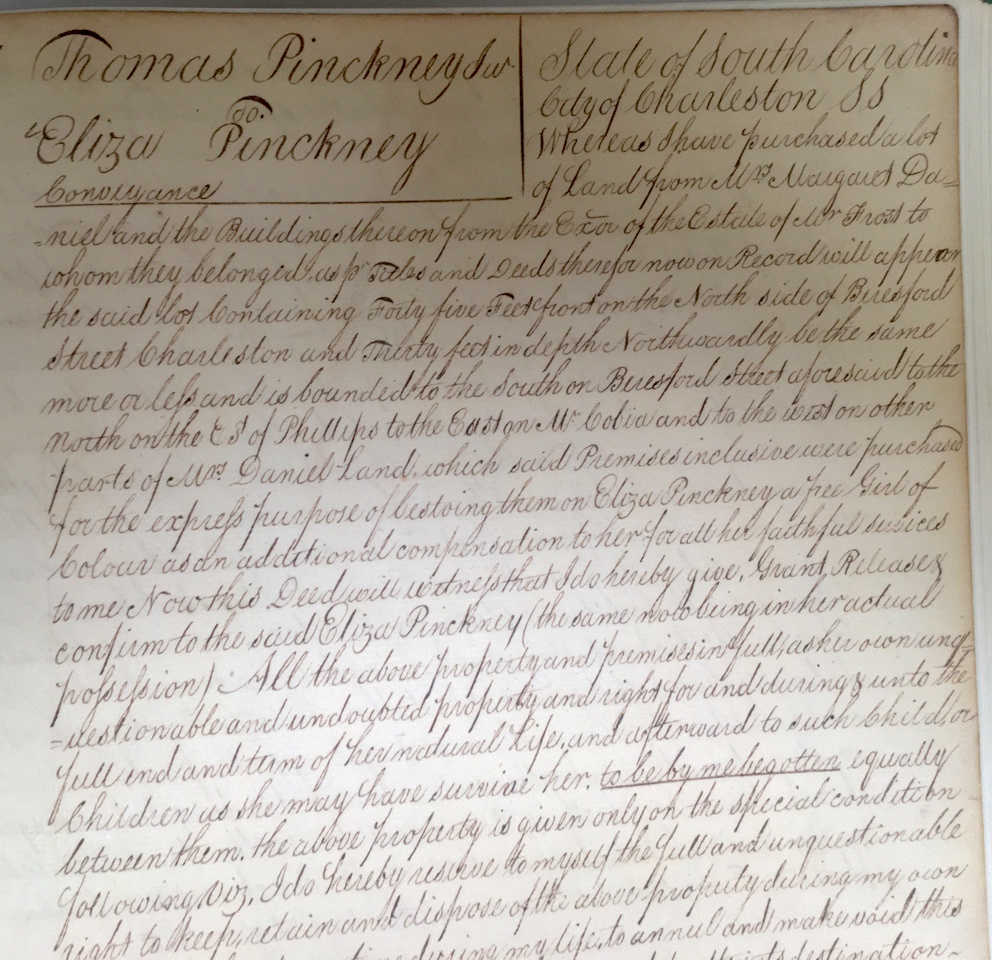 Thomas Pinckney Jur
to.
Eliza Pinckney
Conveyance
State of South Carolina
City of Charleston SS
Whereas I have purchased a lot
of Land from Mrs Margaret Da=
=niel and the Buildings thereon from the Exor of the Estate of Mr Frost to
whom they belonged, as pr Titles and Deeds therefor now on Record will appear
the said lot Containing Forty five Feet front on the North side of Beresford
Street Charleston and Thirty feet in depth Northwardly be the same
more or less and is bounded to the South on Beresford Street aforesaid to the
North on the Est of Phillips to the East on Mr Cobia and to the west on other
parts of Mrs Daniel Land, which said Premises inclusive were purchased
for the express purpose of bestoing them on Eliza Pinckney a free Girl of
Colour as an additional compensation to her for all her faithful services
to me Now this Deed will witness that I do hereby give, Grant, Release &
confirm to the said Eliza Pinckney (the same now being in her actual
possession) All the above property and premises in full, as her own unq=
=uestionable and undoubted property and right for and during & unto the
full end and term of her natural Life, and afterward to such Child, or
Children as she may have survive her, to be by me begotten equally
between them, the above property is given only on the special condition
following Viz, I do hereby reserve to myself the full and unquestionable
right to keep, retain and dispose of the above property during my own
during my life, to annul and make void this
destination-